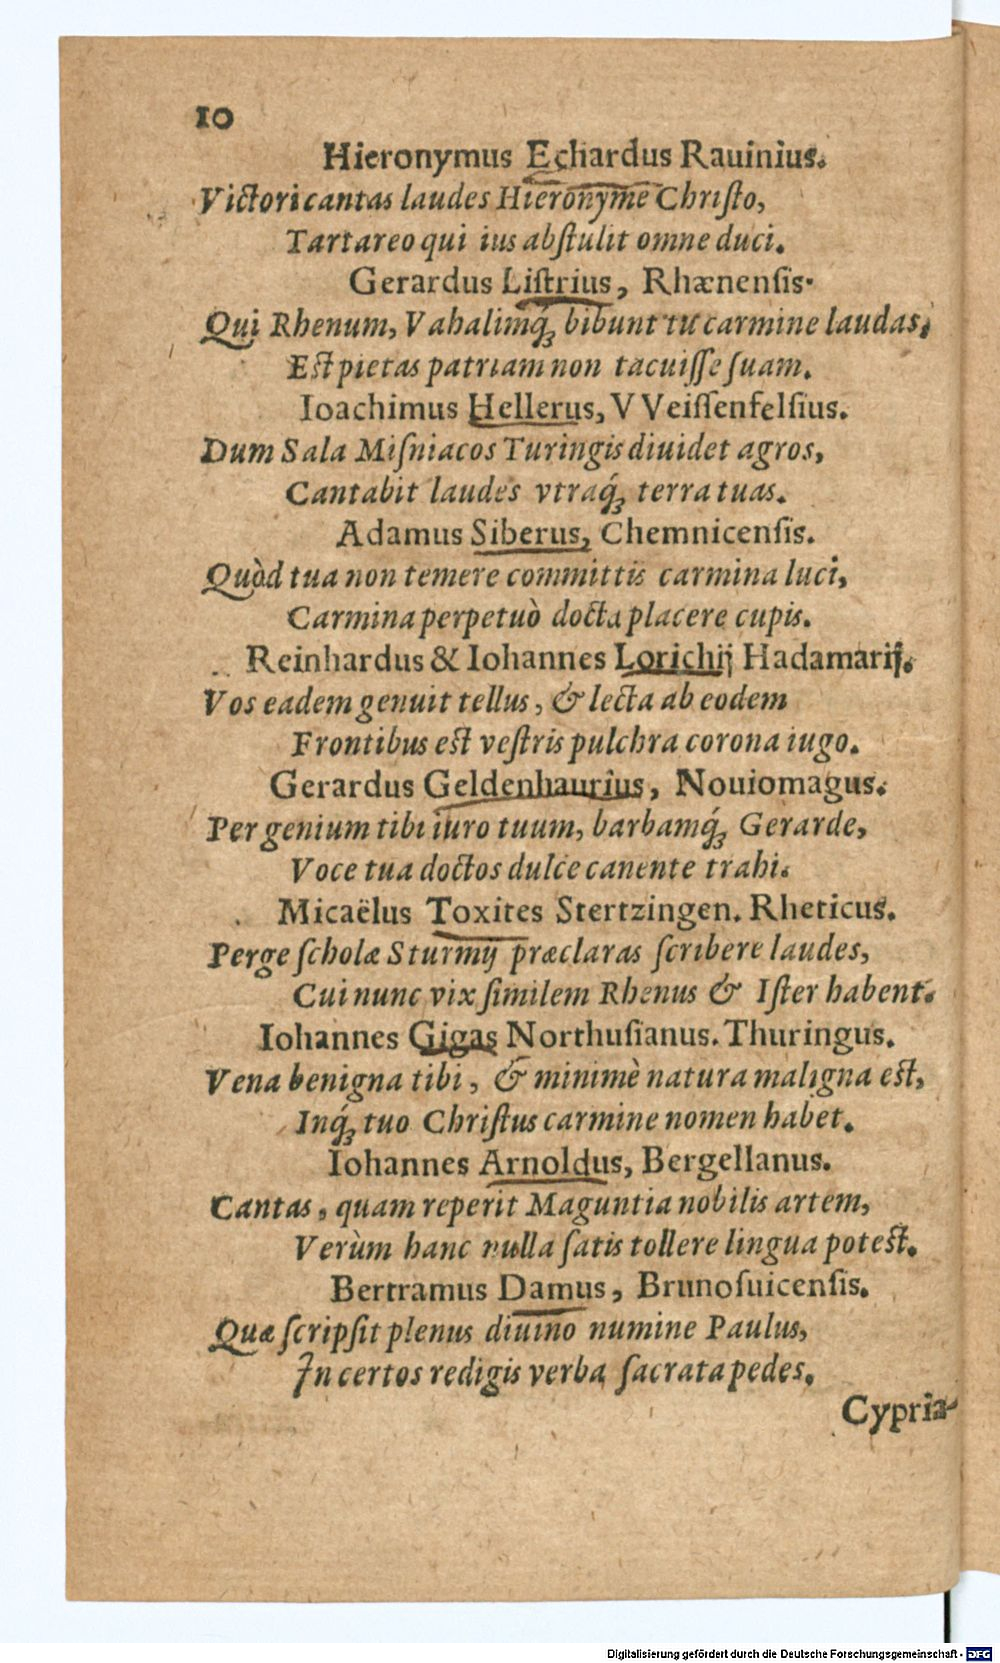 10
Hieronymus Echardus Rauinius.
Victori cantas laudes Hieronyme Chriſto,
Tartareo qui ius abſtulit omne duci.
Gerardus Liſtrius, Rhænenſis.
Qui Rhenum, Vahalimq́ꝫ bibunt tu carmine laudas,
Eſt pietas patriam non tacuiſſe ſuam.
Ioachimus Hellerus, VVeiſſenfelſius.
Dum Sala Miſniacos Turingis diuidet agros,
Cantabit laudes vtraq́ꝫ terra tuas.
Adamus Siberus, Chemnicenſis.
Quòd tua non temere committis carmina luci,
Carmina perpetuò docta placere cupis.
Reinhardus & Iohannes Lorichij Hadamarij.
Vos eadem genuit tellus, & lecta ab eodem
Frontibus eſt veſtris pulchra corona iugo.
Gerardus Geldenhaurius, Nouiomagus.
Per genium tibi iuro tuum, barbamq́ꝫ Gerarde,
Voce tua doctos dulce canente trahi.
Micaëlus Toxites Stertzingen. Rheticus.
Perge ſcholæ Sturmij præclaras ſcribere laudes,
Cui nunc vix ſimilem Rhenus & Iſter habent.
Iohannes Gigas Northuſianus. Thuringus.
Vena benigna tibi, & minimè natura maligna eſt,
Inq́ꝫ tuo Chriſtus carmine nomen habet.
Iohannes Arnoldus, Bergellanus.
Cantas, quam reperit Maguntia nobilis artem,
Verùm hanc nulla ſatis tollere lingua poteſt.
Bertramus Damus, Brunoſuicenſis.
Quæ ſcripſit plenus diuino numine Paulus,
In certos redigis verba ſacrata pedes.
Cypria-
Digitalisierung gefördert durch die Deutsche Forschungsgemeinschaft - DFG